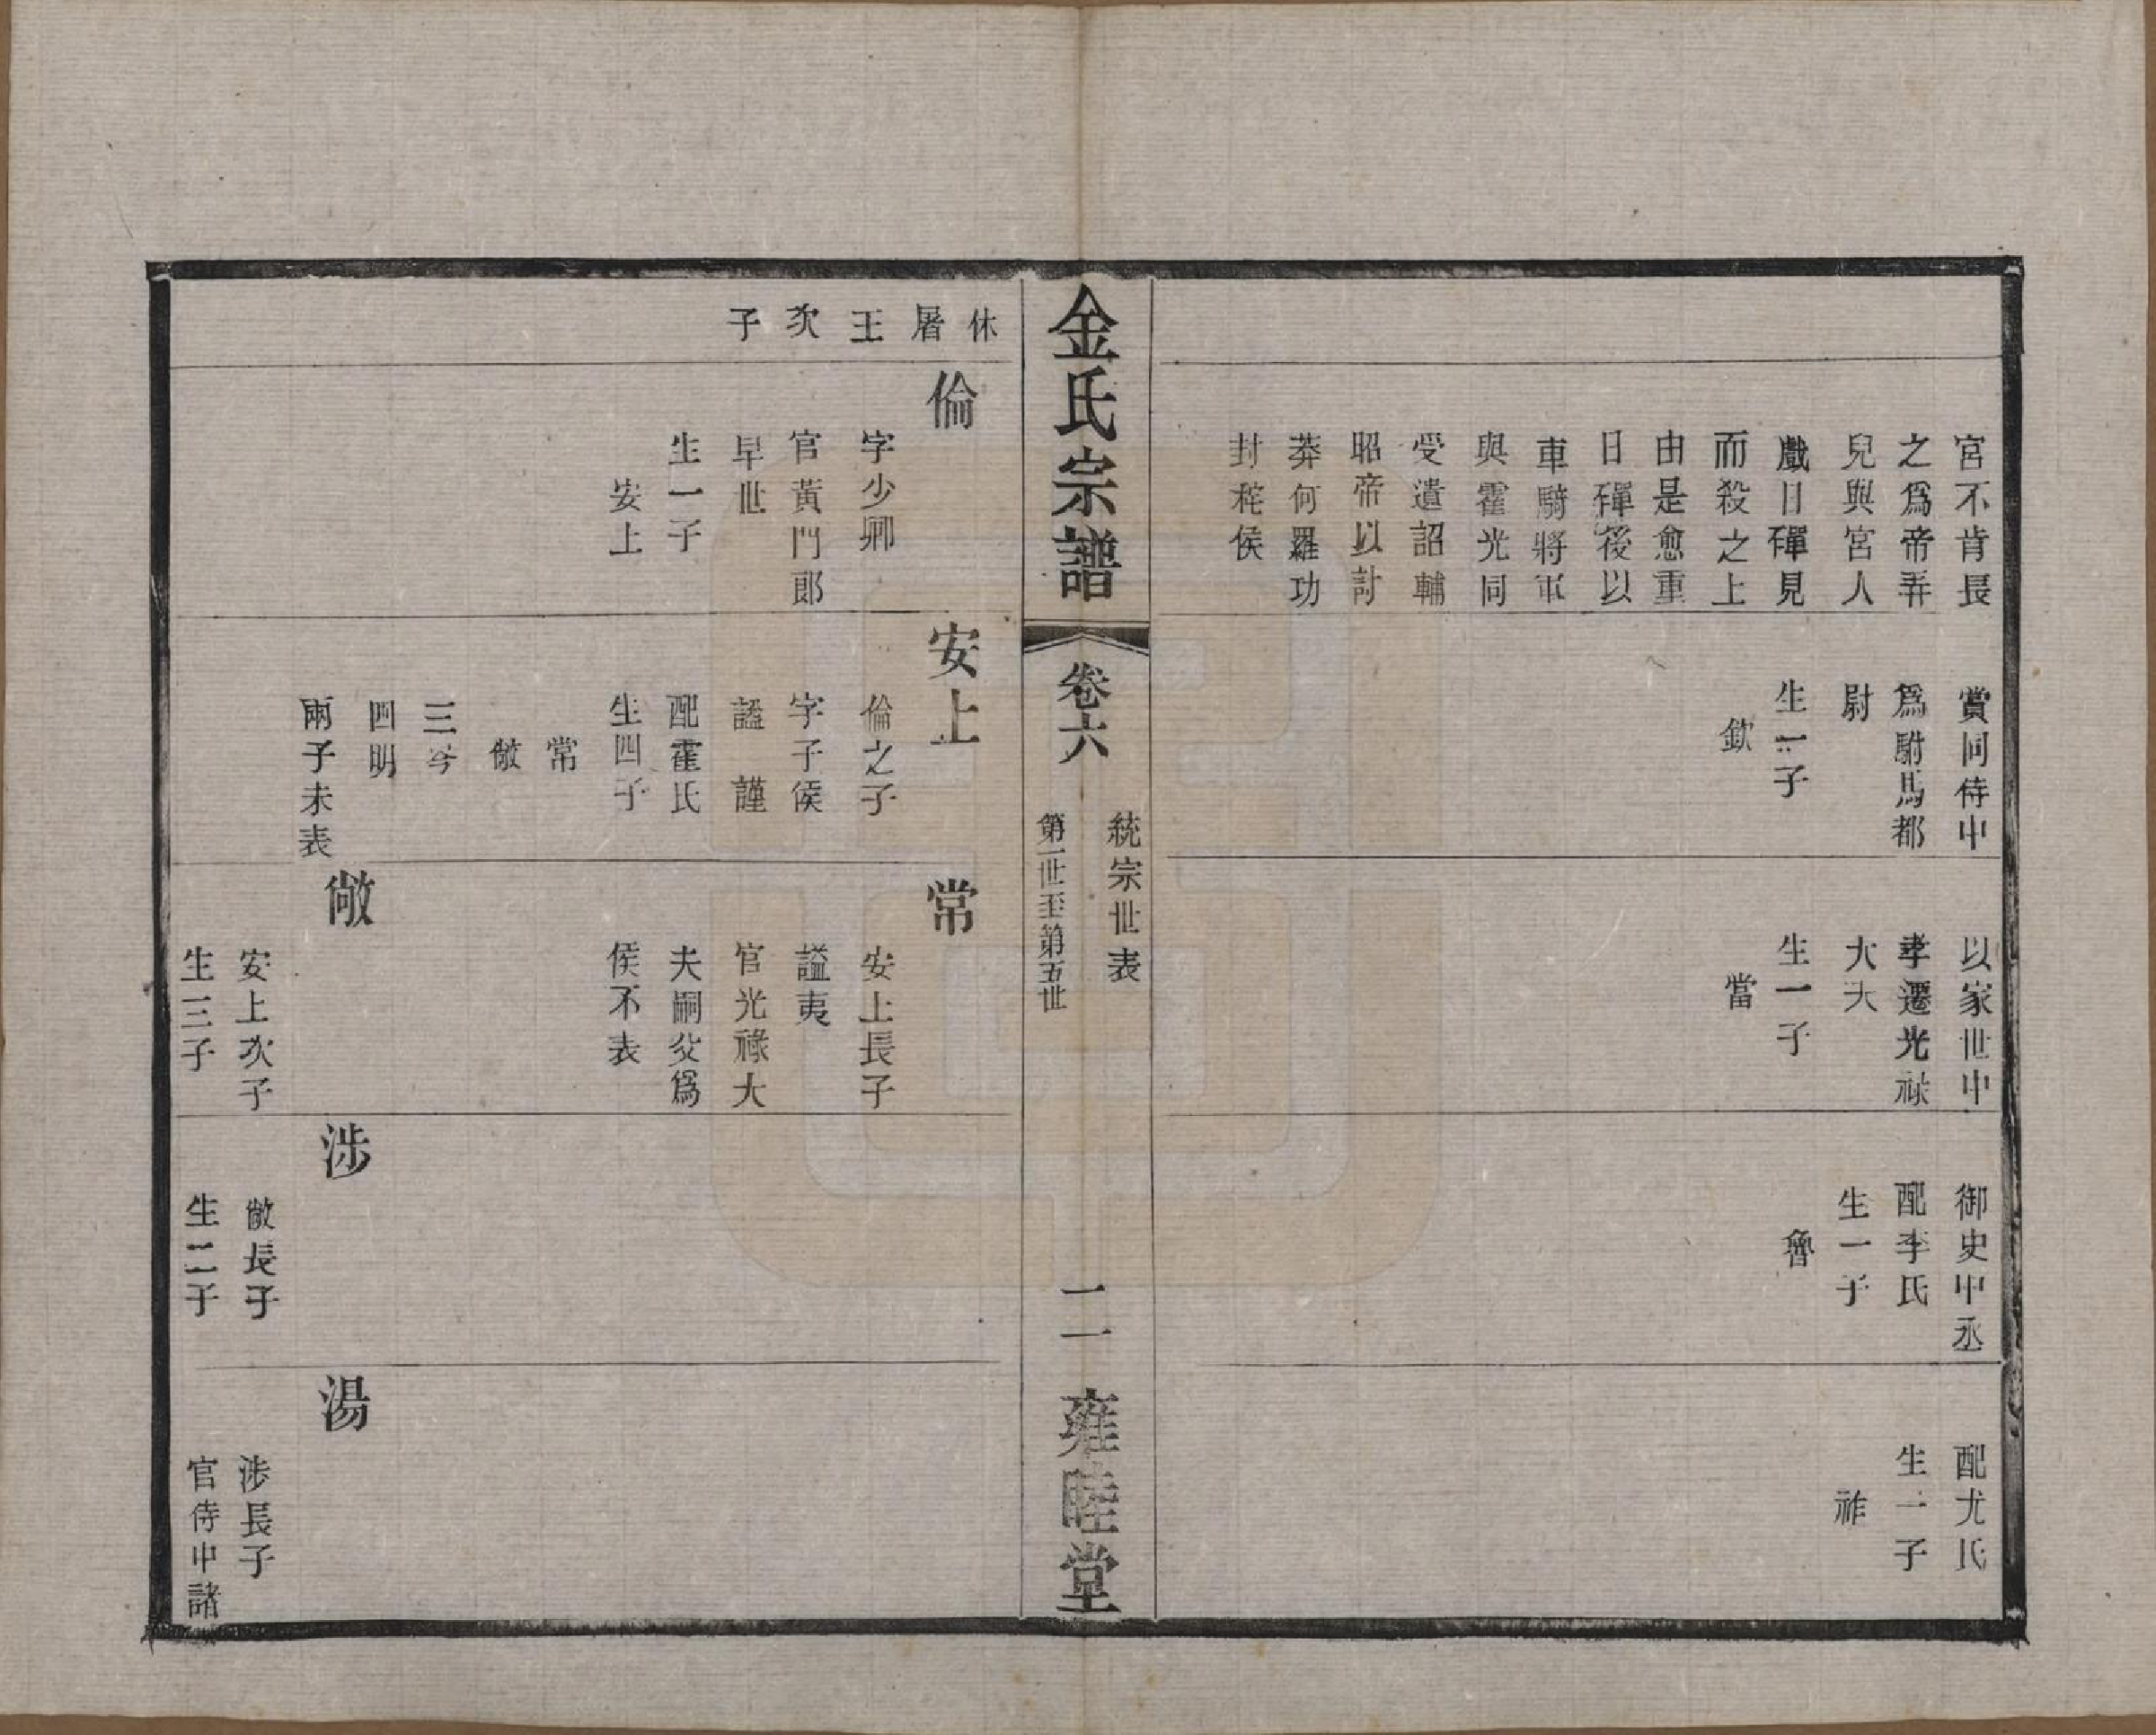 宮不肯長
之爲帝弄
兒與宮人
戲日磾見
而殺之上
由是愈重
日磾後以
車騎將軍
與霍光同
受遺詔輔
昭帝以討
莽何羅功
封秺侯
賞同侍中
爲駙馬都
尉
生一子
欽
以家世中
孝遷光祿
大夫
生一子
當
御史中丞
配李氏
生一子
魯
配尤氏
生一子
祚
金氏宗譜
卷六
統宗世表
第一世至第五世
二
雍睦堂
休
屠
王
次
子
倫
字少卿
官黃門郎
早世
生一子
安上
安上
倫之子
字子侯
謚 謹
配霍氏
生四子
常
敞
三岑
四明
兩子未表
常
安上長子
謚夷
官光祿大
夫嗣父爲
侯不表
敞
安上次子
生三子
涉
敞長子
生二子
湯
涉長子
官侍中諸